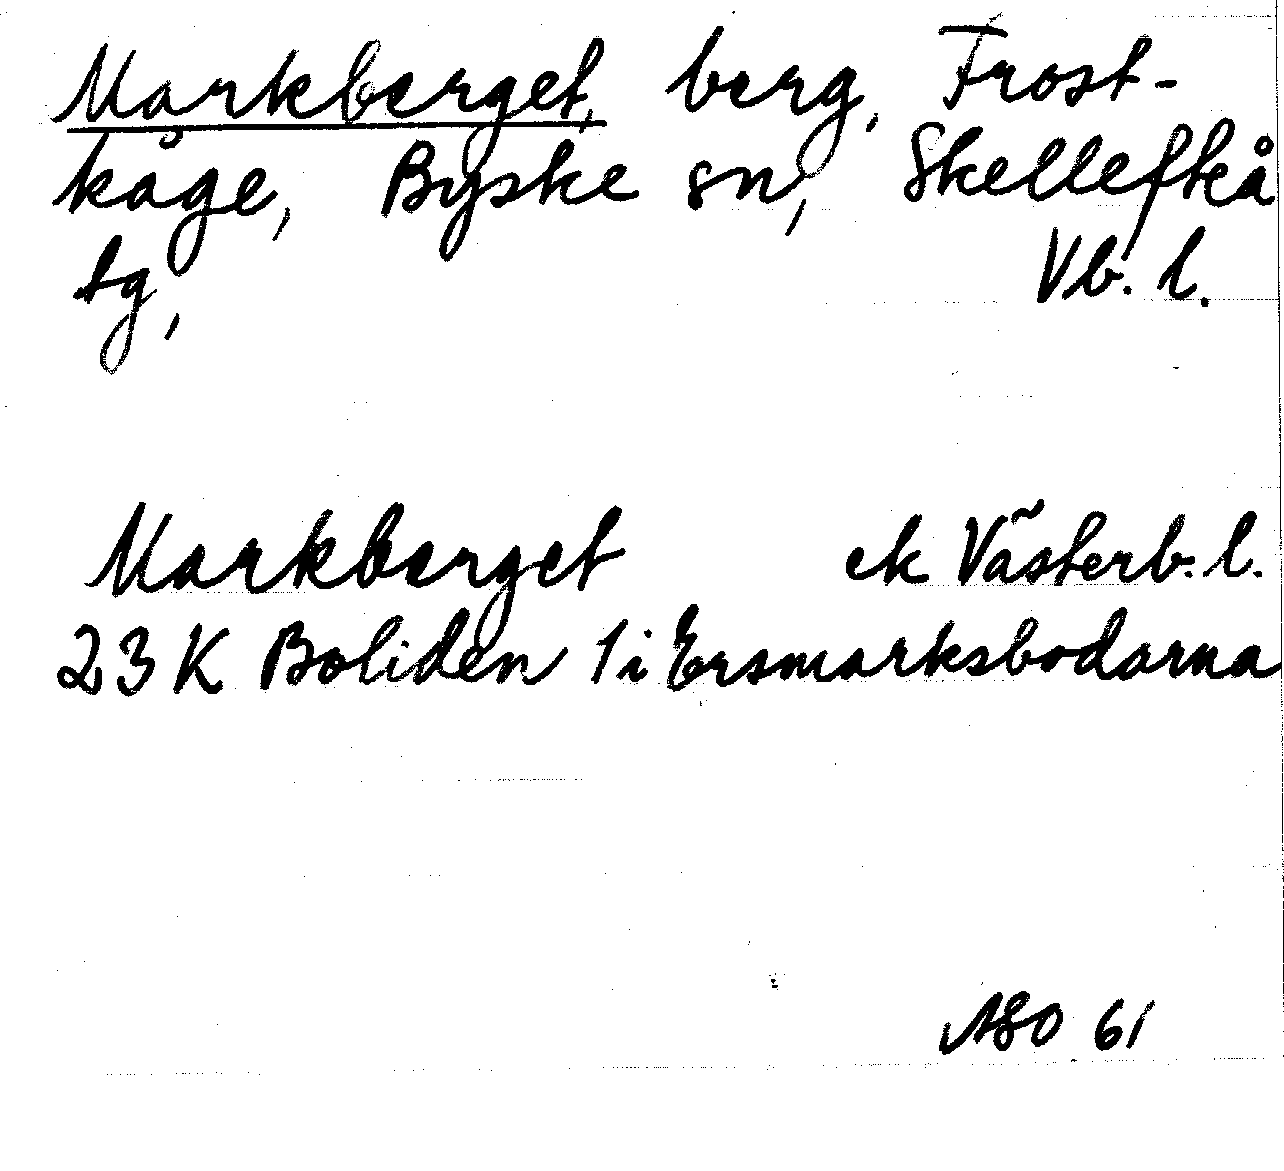 Markberget, berg, Frost-
kåge, Byske sn, Skellefteå
tg, Vb. l.
Markberget ek Västerb. l.
23 K Boliden 1 i Ersmarksbodarna
ASO 61